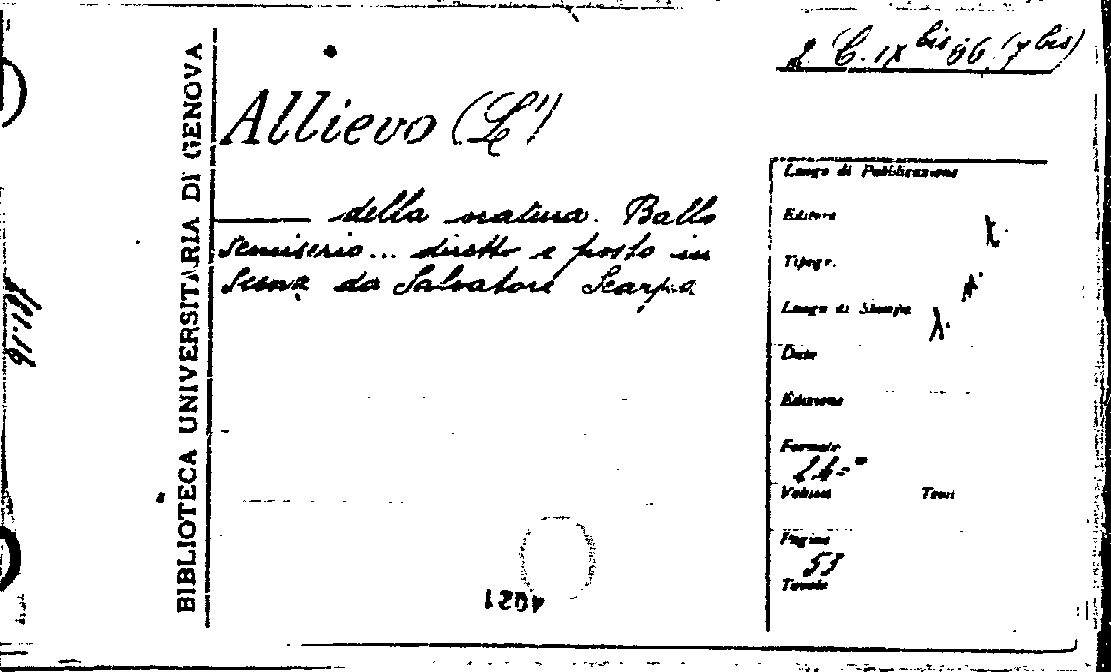 2 C. IX bis 86 (7 bis)
Allievo (L')
della natura. Ballo
semiserio... diretto e posto in
Scena da Salvatore Scarpa
BIBLIOTECA UNIVERSITARIA DI GENOVA
Luogo di Pubblicazione
Editore
X.
Tipogr.
Luogo di Stampa
Date
Edizione
Formato
24=°
Volumi Tomi
Pagine
53
Tavole